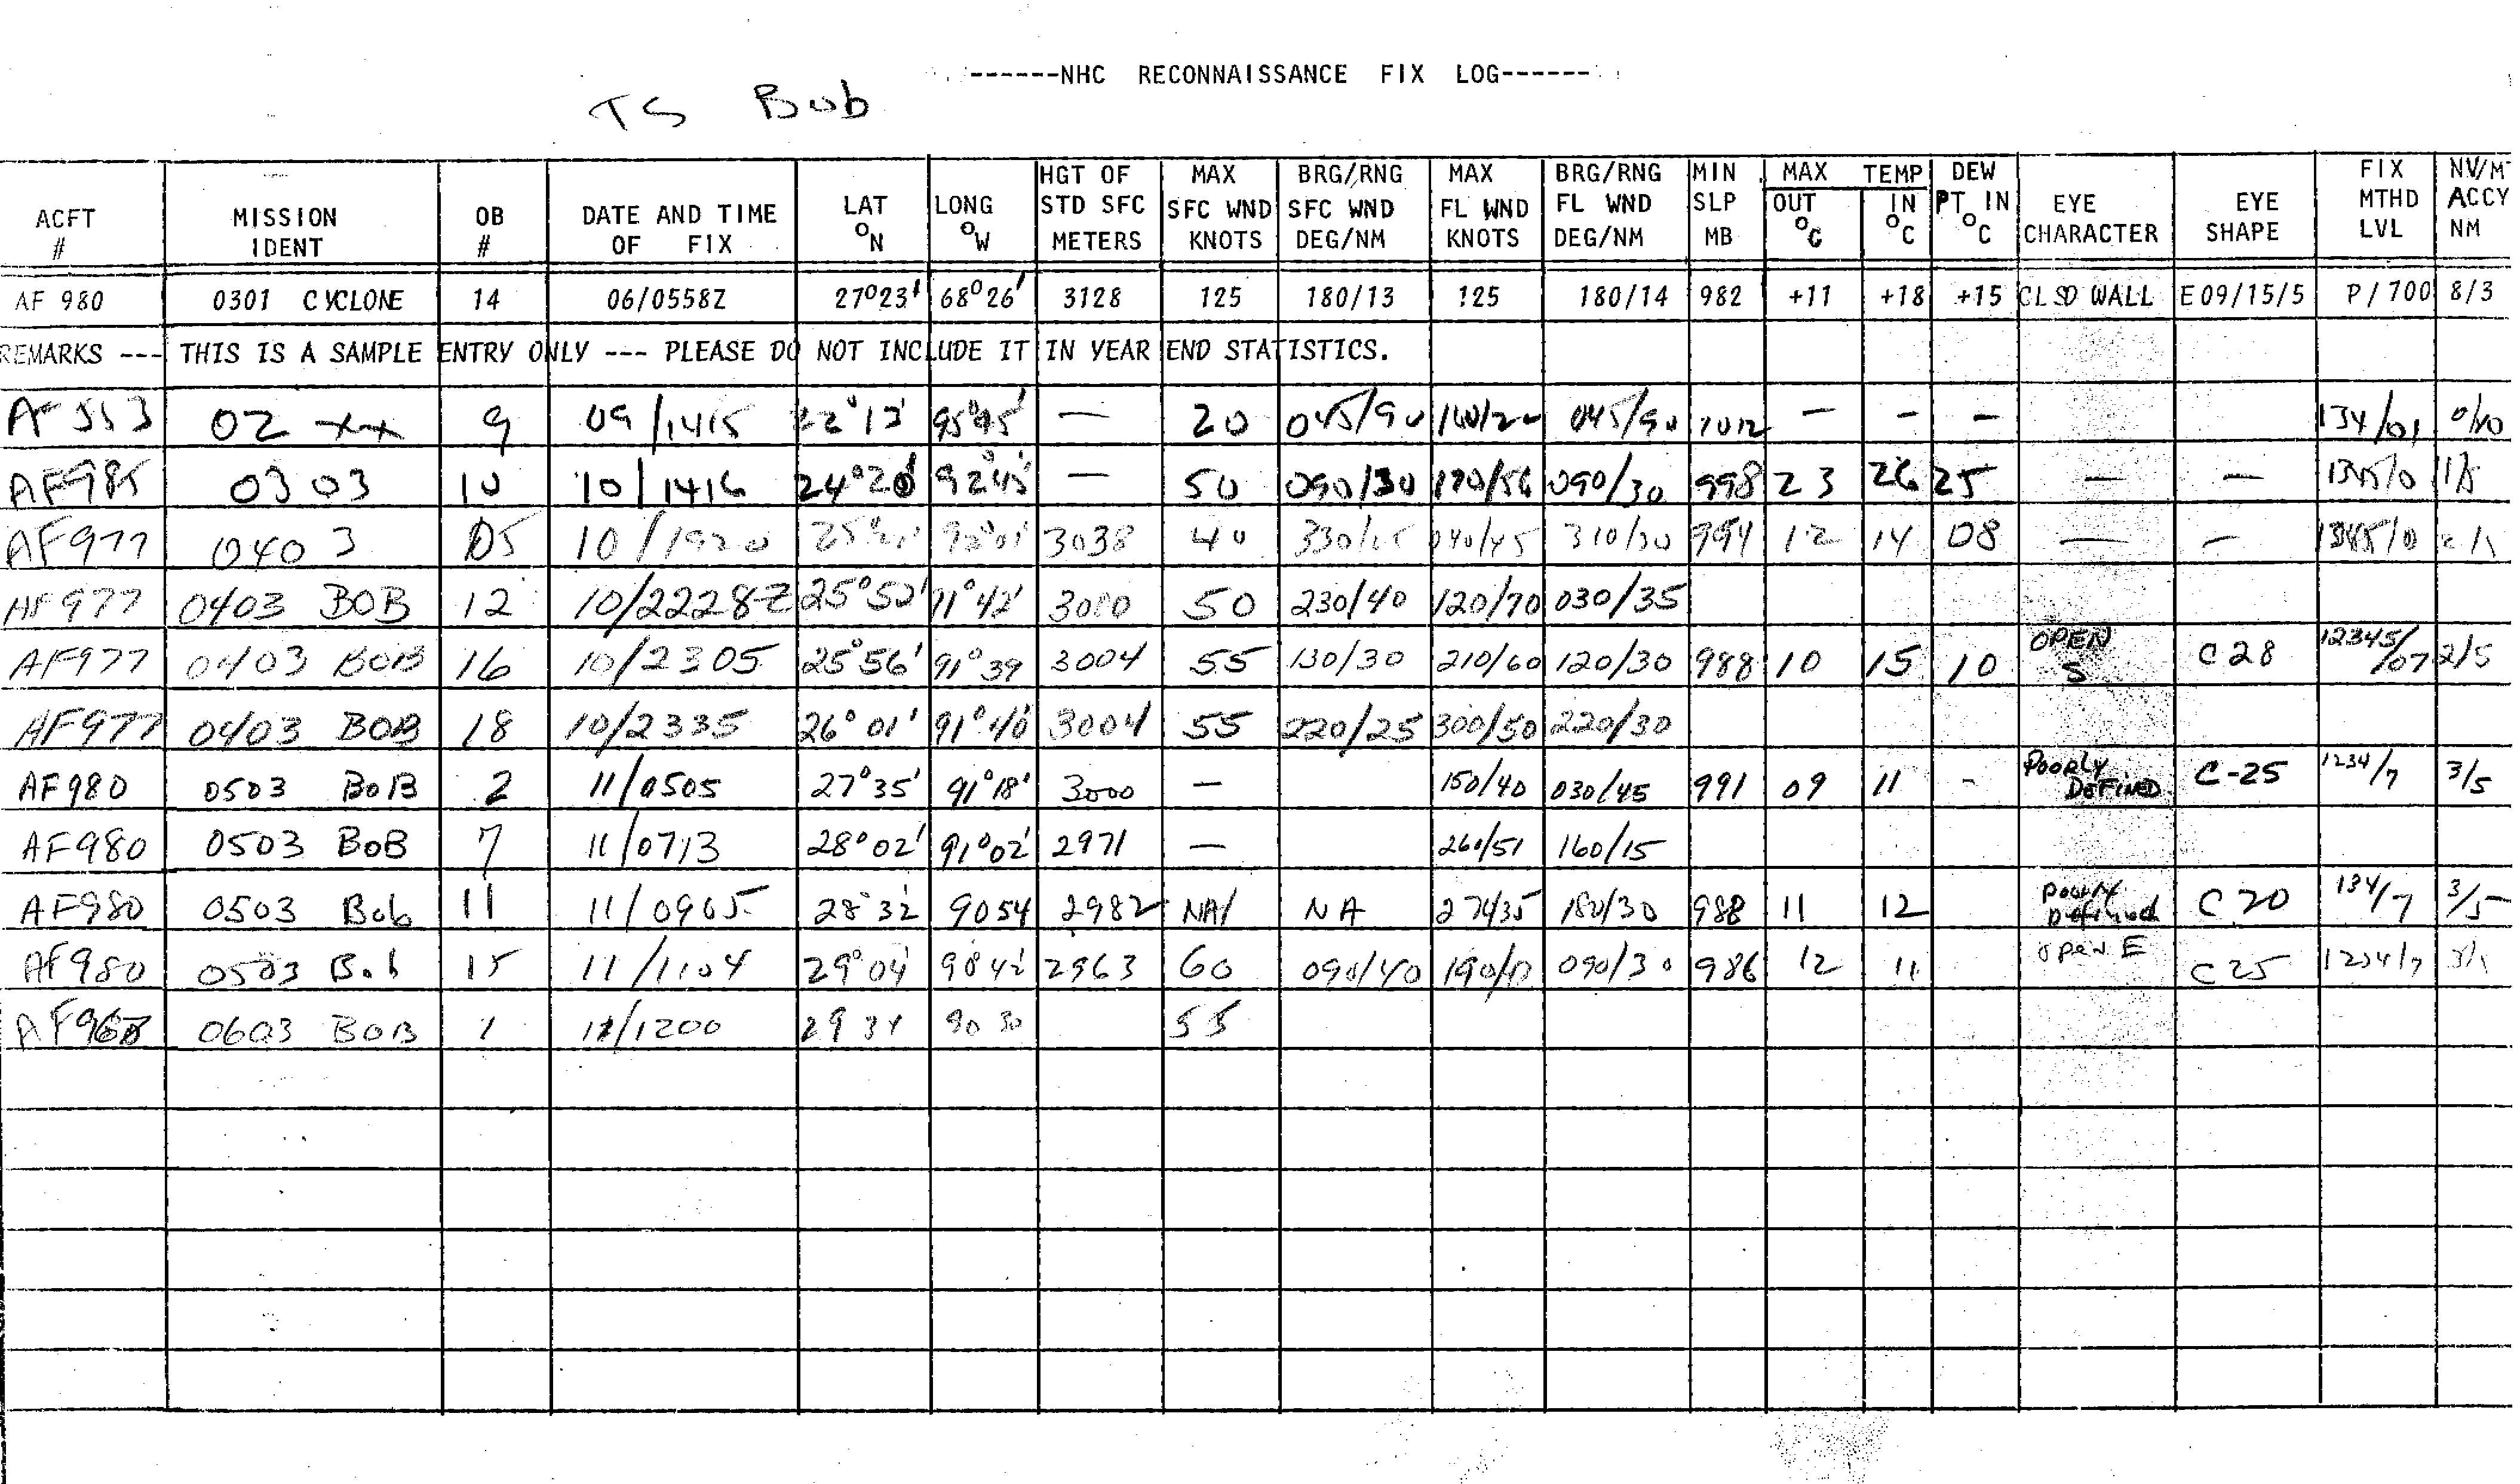 ------NHC RECONNAISSANCE FIX LOG------
TS Bob
ACFT # MISSION IDENT OB # DATE AND TIME OF FIX LAT °N LONG °W HGT OF STD SFC METERS MAX SFC WND KNOTS BRG/RNG SFC WND DEG/NM MAX FL WND KNOTS BRG/RNG FL WND DEG/NM MIN SLP MB MAX OUT °C TEMP IN °C DEW PT IN °C EYE CHARACTER EYE SHAPE FIX MTHD LVL NV/M ACCY NM
AF 980 0301 CYCLONE 14 06/0558Z 27°23' 68°26' 3128 125 180/13 125 180/14 982 +11 +18 +15 CLSD WALL E09/15/5 P/700 8/3
REMARKS --- THIS IS A SAMPLE ENTRY ONLY --- PLEASE DO NOT INCLUDE IT IN YEAR END STATISTICS.
02 xx 9 09/1415 — 20 045/90 045/90 1012 — — —
AF985 0303 10 10/1416 24°20' 92°45' — 50 090/30 090/30 998 23 26 25 — —
AF977 0403 05 10/1920 3038 40 310/30 12 14 08 — —
AF977 0403 BOB 12 10/2228Z 25°52' 91°42' 50 230/40 120/70 030/35
AF977 0403 BOB 16 10/2305 25°56' 91°39 3004 55 130/30 210/60 120/30 988 10 15 10 OPEN S C28 12345/07 2/5
AF977 0403 BOB 18 10/2335 26°01' 91°40' 3004 55 220/25 300/50 220/30
AF980 0503 BoB 2 11/0505 27°35' 91°18' 3000 — 150/40 030/45 991 09 11 - POORLY DEFINED C-25 1234/7 3/5
AF980 0503 BoB 7 11/0713 28°02' 91°02' 2971 — 260/51 160/15
AF980 0503 Bob 11 11/0905 28°32' 9054 2982 NA NA 180/30 988 11 12 poorly Defined C20 134/7 3/5
AF980 0503 Bob 15 11/1104 29°04' 2963 60 090/40 090/30 986 12 11 open E C25 1234/7
0603 BOB 1 11/1200 29 34 90 30 55